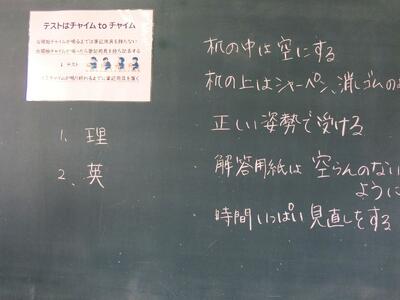 テストはチャイム to チャイム
1. 理
2. 英
机の中は空にする
机の上はシャーペン、消しゴムの
正しい姿勢で受ける
解答用紙は空らんのない
ように
時間いっぱい見直しをする